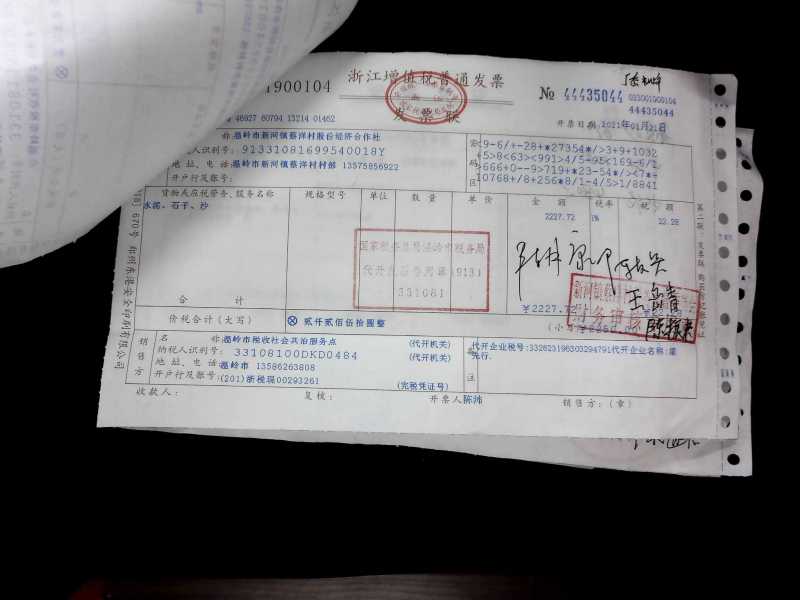 1900104 浙江增值税普通发票 № 44435044
033001900104
44435044
发票联
开票日期:2021年01月21日
46927 60794 13214 01462
称:温岭市新河镇蔡洋村股份经济合作社
人识别号: 91331081699540018Y
地址、电话:温岭市新河镇蔡洋村村部 13575856922
开户行及账号:
密码区
9-6/+-28+*27354*/>3+9+1032
+5>8<63><991>4/5-95<169-6/1
>666+0--9>719+*23-54*/><7*-
10768+/8+256*8/1-4/5>1/8841
货物或应税劳务、服务名称 规格型号 单位 数量 单价 金额 税率 税额
水泥、石子、沙 2227.72 1% 22.28
国家税务总局温岭市税务局
代开发票专用章(913)
331081
合计 ¥2227.72
价税合计(大写) ⊗贰仟贰佰伍拾圆整 (小写)
财务审核
王岳青
销售方
名称:温岭市税收社会共治服务点 (代开机关)
纳税人识别号: 33108100DKD0484 (代开机关)
地址、电话:温岭市 13586263808
开户行及账号:(201)浙税现00293261 (完税凭证号)
备注
代开企业税号:332623196303294791代开企业名称:梁
先行.
收款人: 复核: 开票人:陈沛 销售方:(章)
670号 郑州东港安全印刷有限公司
第二联:发票联 购买方记账凭证